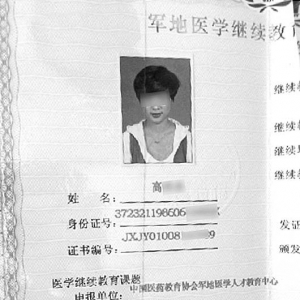 军地医学继续教育
继续
继续
继续
继续
姓 名: 高
身份证号: 372321198606 X
证书编号: JXJY01008 9
发证
颁发
医学继续教育课题
申报单位: 中国医药教育协会军地医学人才教育中心